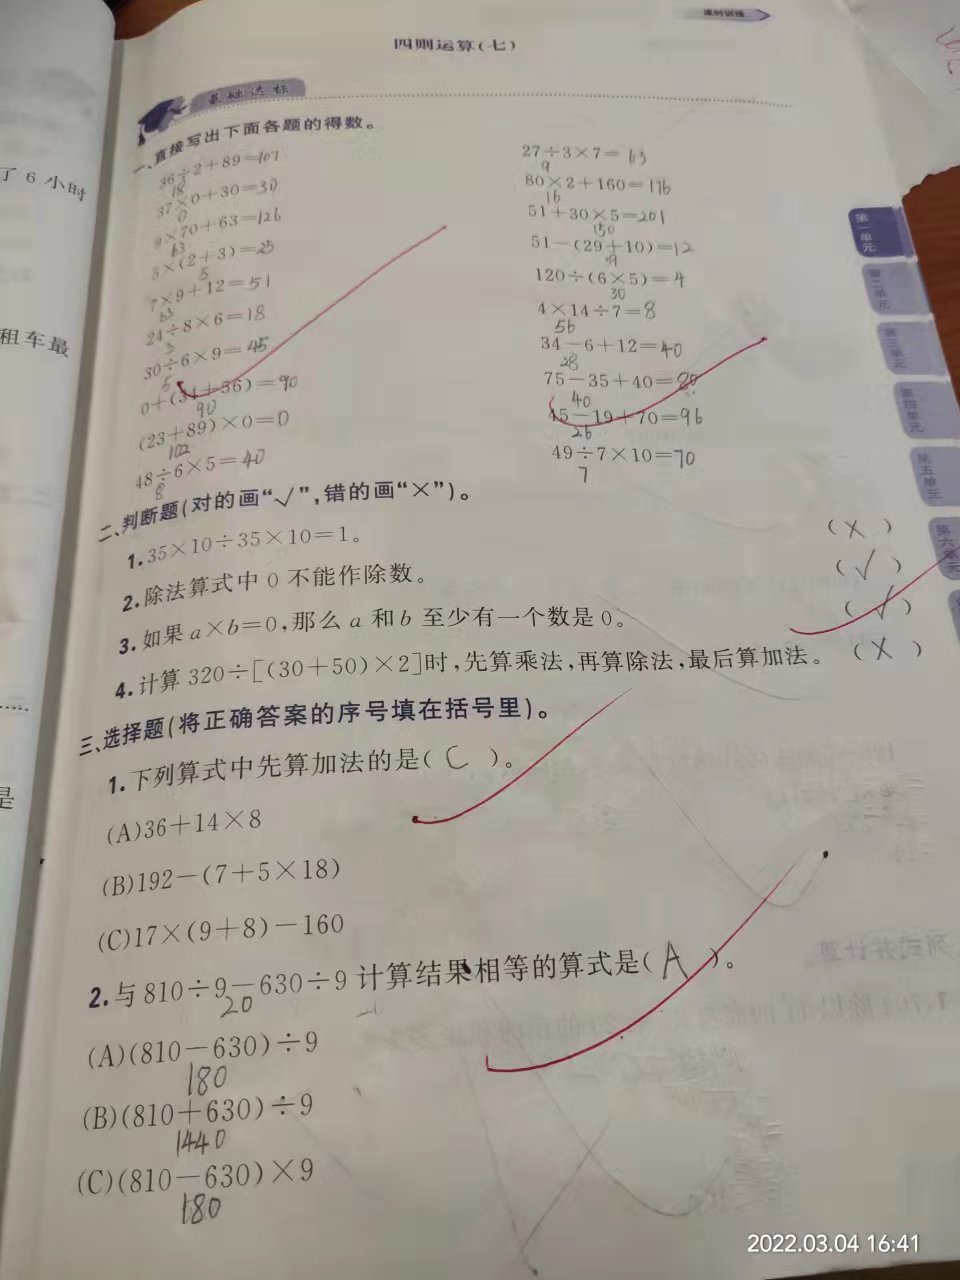 课时训练
四则运算(七)
基础达标
一、直接写出下面各题的得数。
36÷2+89=107
18
37×0+30=30
0
9×70+63=126
63
5×(2+3)=25
5
7×9+12=51
63
24÷8×6=18
3
30÷6×9=45
5
0÷(34+56)=90
90
(23+89)×0=0
102
48÷6×5=40
8
27÷3×7=63
9
80×2+160=176
16
51+30×5=201
150
51-(29+10)=12
39
120÷(6×5)=4
30
4×14÷7=8
56
34-6+12=40
28
75-35+40=80
40
45-19+70=96
26
49÷7×10=70
7
二、判断题(对的画“√”,错的画“×”)。
1.35×10÷35×10=1。 (×)
2.除法算式中0不能作除数。 (√)
3.如果a×b=0,那么a和b至少有一个数是0。 (√)
4.计算320÷[(30+50)×2]时,先算乘法,再算除法,最后算加法。 (×)
三、选择题(将正确答案的序号填在括号里)。
1.下列算式中先算加法的是( C )。
(A)36+14×8
(B)192-(7+5×18)
(C)17×(9+8)-160
2.与810÷9-630÷9计算结果相等的算式是( A )。
20
(A)(810-630)÷9
180
(B)(810+630)÷9
1440
(C)(810-630)×9
180
了6小时
租车最
是
第一单元
第二单元
第三单元
第四单元
第五单元
第六单元
2022.03.04 16:41